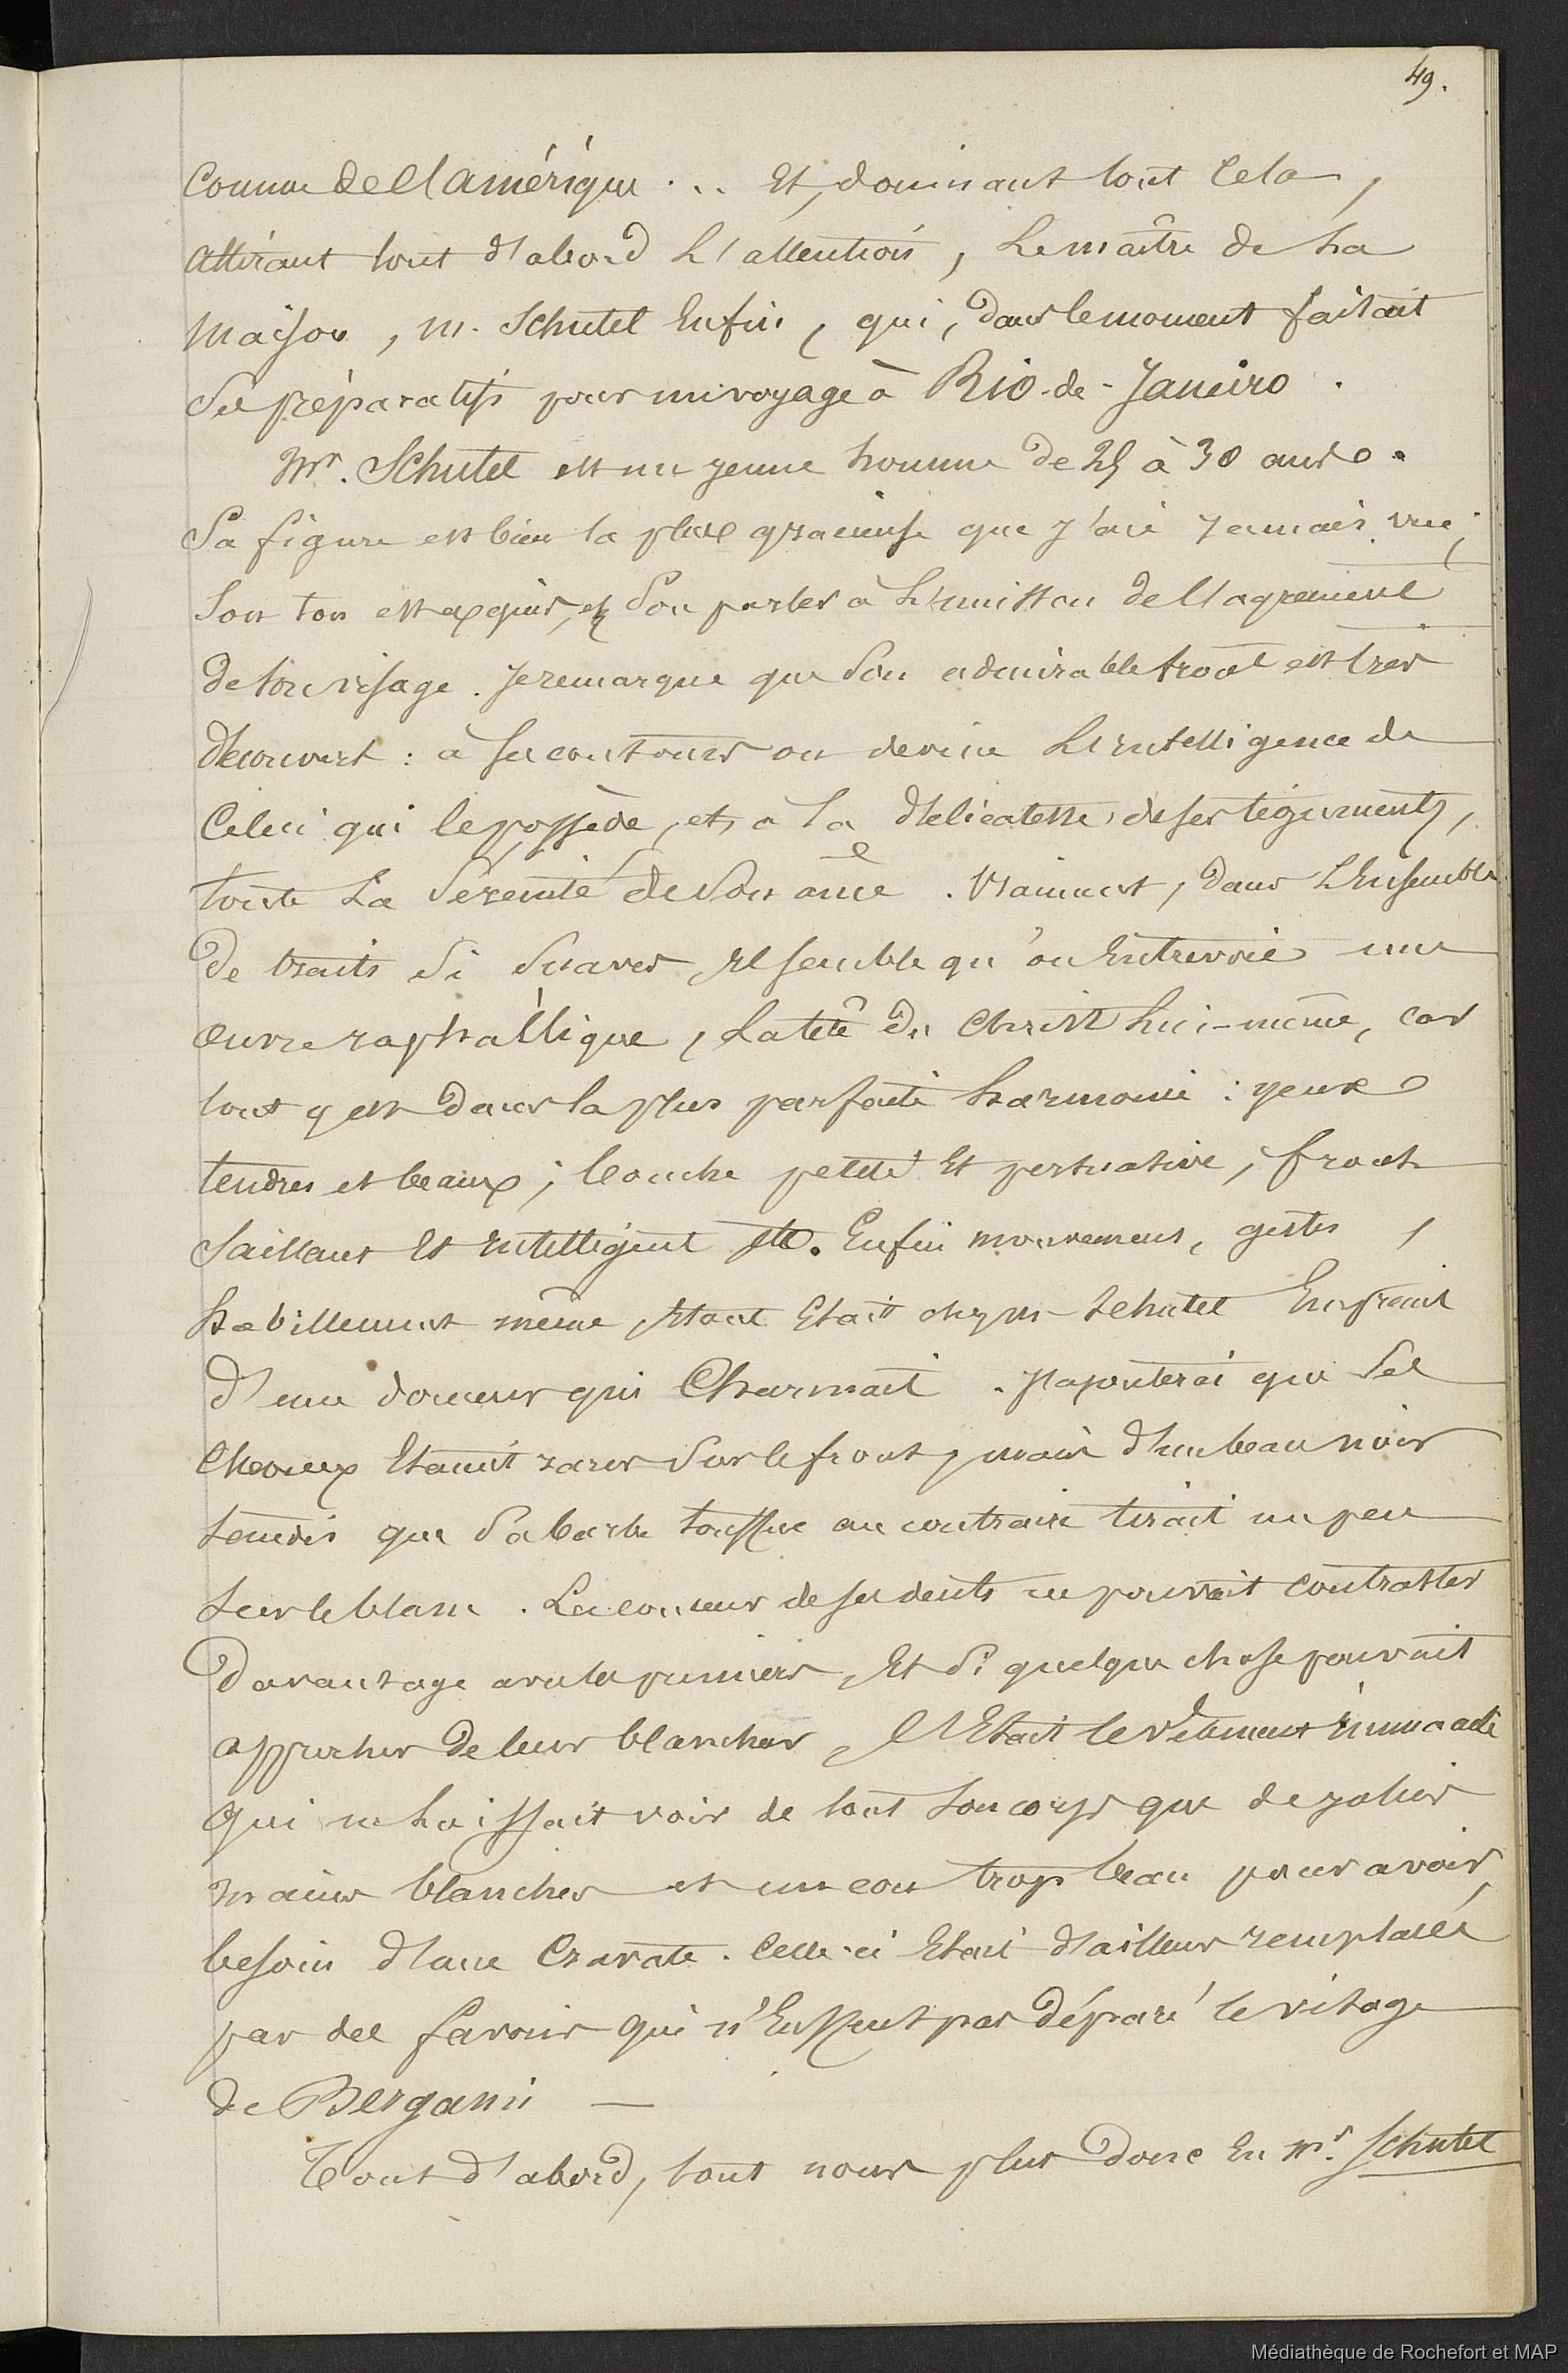 49.
Comme de l'amérique ... Et, dominant tout Cela,
attirant tout d'abord L'attention, Le maître de La
maison, m. Schutel Enfin, qui, dans le moment faisait
des préparatifs pour un voyage à Rio-de-Janeiro.
Mr. Schutel est un jeune homme de 25 à 30 ans.
Sa figure est bien la plus gracieuse que j'aie jamais vue;
Son ton est exquis, et Son parler à L'unisson de l'agrément
de son visage. Je remarque que Son admirable front est très
découvert : à ses contours on devine L'intelligence de
Celui qui le possède, et, à la délicatesse de ses téguments,
toute La Sérénité de Son âme. Vraiment, dans L'Ensemble
de traits Si Suaves, il semble qu'on Entrevoie une
œuvre raphaëlique, La tête du Christ Lui-même, car
tout y est dans la plus parfaite harmonie : yeux
tendres et beaux; bouche petite Et persuasive, front
Saillant Et intelligent etc. Enfin mouvemens, gestes,
habillement même, tout Etait chez m. Schutel Empreint
d'une douceur qui Charmait. J'ajouterai que Ses
Cheveux Etaient rares Sur le front, mais d'un beau noir
tandis que Sa barbe touffue au contraire tirait un peu
Sur le blanc. La couleur de ses dents ne pouvait contraster
davantage avec les premiers, Et Si quelque chose pouvait
approcher de leur blancheur, C'Etait le vêtement immaculé
qui ne Laissait voir de tout Son corps que de jolies
mains blanches et un cou trop beau pour avoir
besoin d'une Cravate. Celle-ci Etait d'ailleurs remplacée
par des favoris qui n'Eussent pas déparé le visage
de Bergami —
Tout d'abord, tout nous plut donc En Mr. Schutel
Médiathèque de Rochefort et MAP